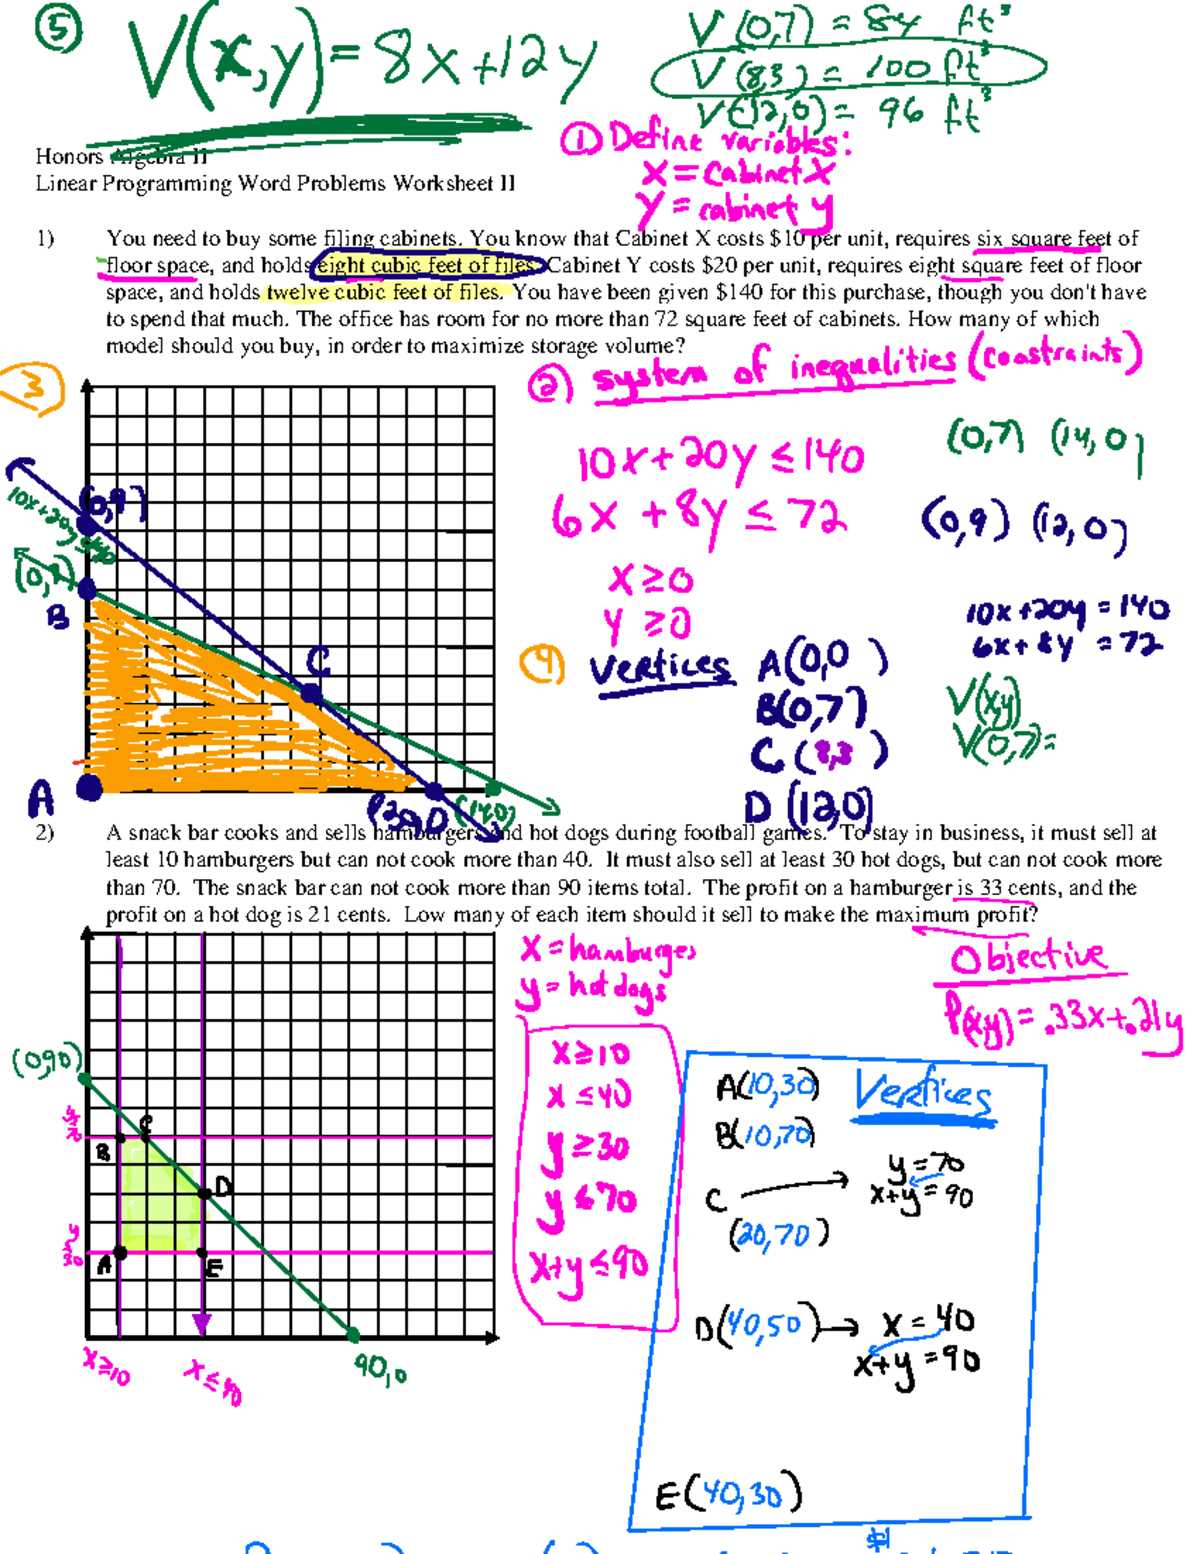 ⑤ V(x,y) = 8x+12y
V(0,7) = 84 ft³
V(8,3) = 100 ft³
V(12,0) = 96 ft³
① Define variables:
x = cabinet X
y = cabinet y
Honors Algebra II
Linear Programming Word Problems Worksheet II
1) You need to buy some filing cabinets. You know that Cabinet X costs $10 per unit, requires six square feet of
floor space, and holds eight cubic feet of files. Cabinet Y costs $20 per unit, requires eight square feet of floor
space, and holds twelve cubic feet of files. You have been given $140 for this purchase, though you don't have
to spend that much. The office has room for no more than 72 square feet of cabinets. How many of which
model should you buy, in order to maximize storage volume?
3
② system of inequalities (constraints)
10x+20y ≤ 140
(0,7) (14,0)
6x + 8y ≤ 72
(0,9) (12,0)
x ≥ 0
y ≥ 0
10x+20y = 140
6x+8y = 72
(0,9)
(0,7)
B
C
A
D
(14,0)
④ Vertices A(0,0)
B(0,7)
C(8,3)
D(12,0)
V(x,y)
V(0,7)=
2) A snack bar cooks and sells hamburgers and hot dogs during football games. To stay in business, it must sell at
least 10 hamburgers but can not cook more than 40. It must also sell at least 30 hot dogs, but can not cook more
than 70. The snack bar can not cook more than 90 items total. The profit on a hamburger is 33 cents, and the
profit on a hot dog is 21 cents. Low many of each item should it sell to make the maximum profit?
x = hamburges
y = hot dogs
Objective
P(x,y) = .33x+.21y
x ≥ 10
x ≤ 40
y ≥ 30
y ≤ 70
x+y ≤ 90
(0,90)
B
C
D
A
E
x ≥ 10
x ≤ 40
90,0
Vertices
A(10,30)
B(10,70)
C
(20,70)
y = 70
x+y = 90
D(40,50)
x = 40
x+y = 90
E(40,30)